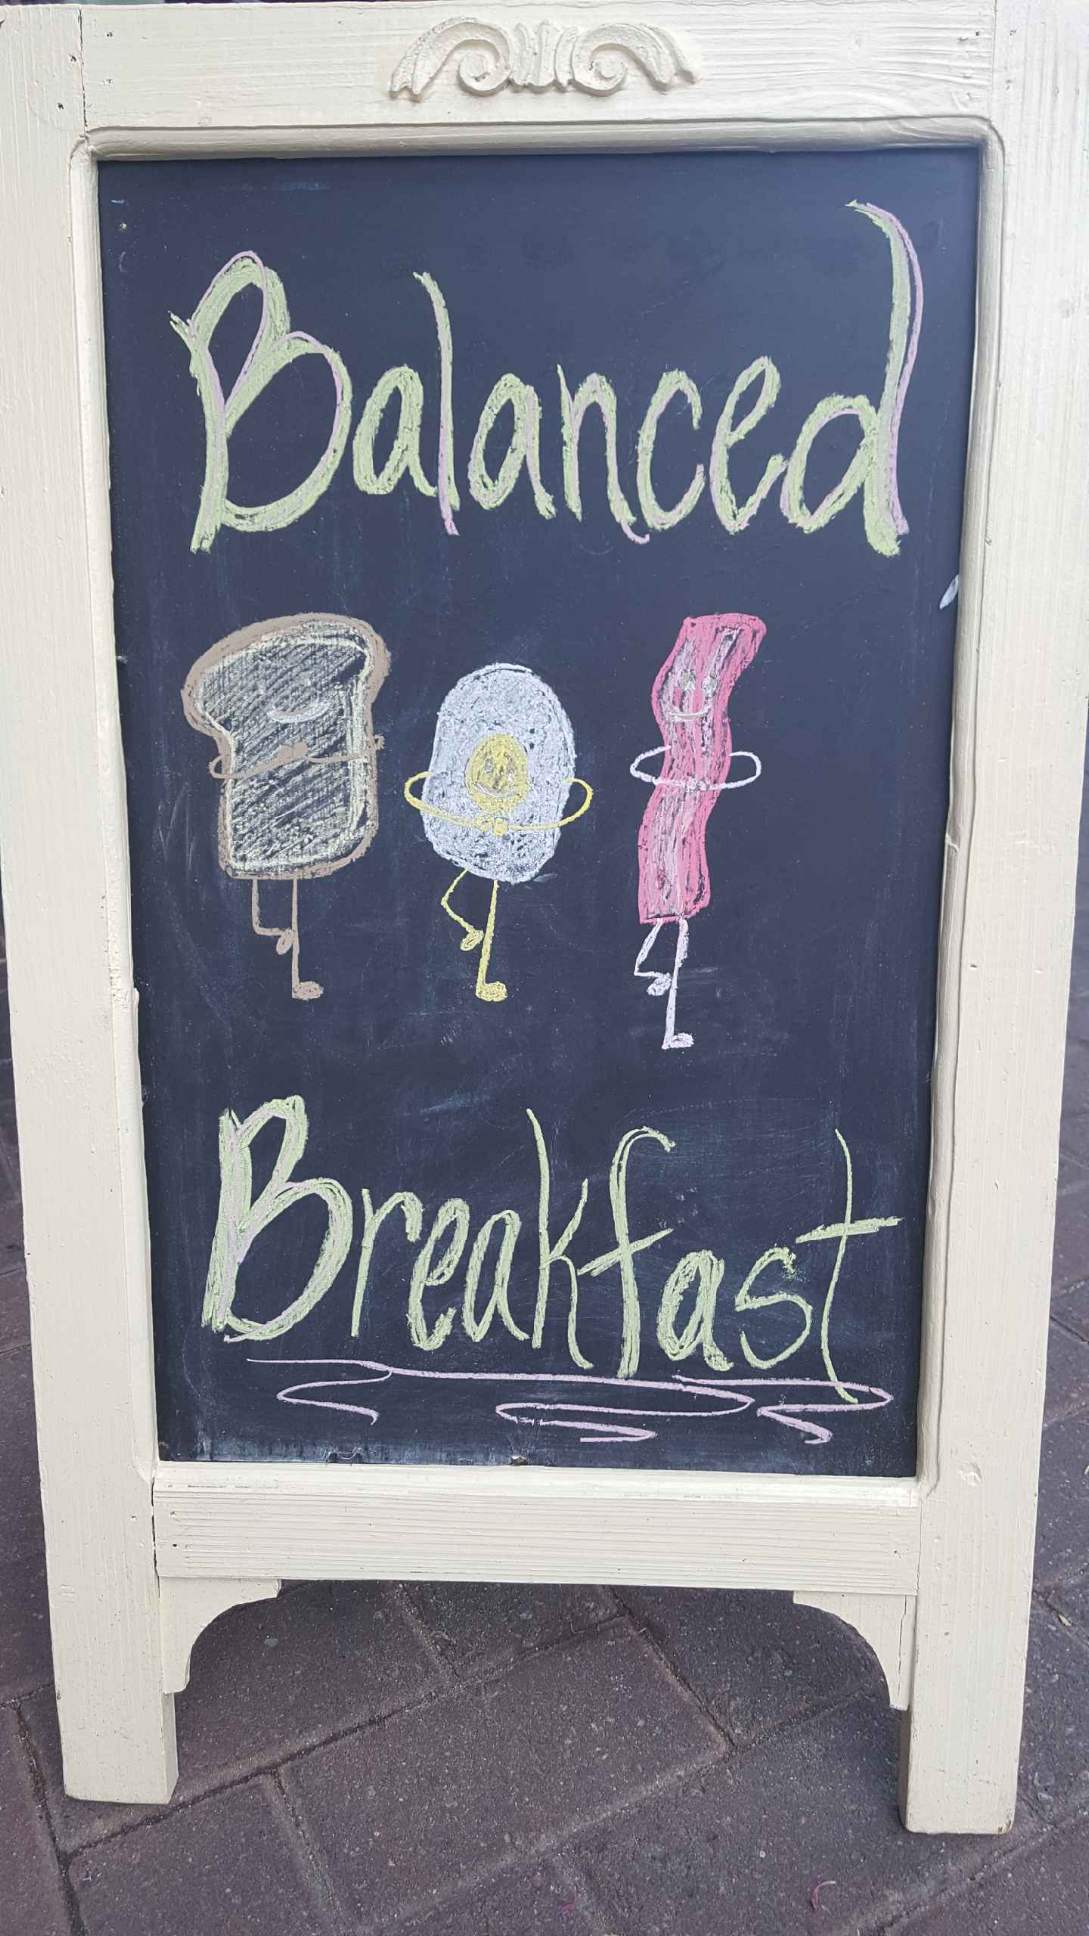 Balanced
Breakfast